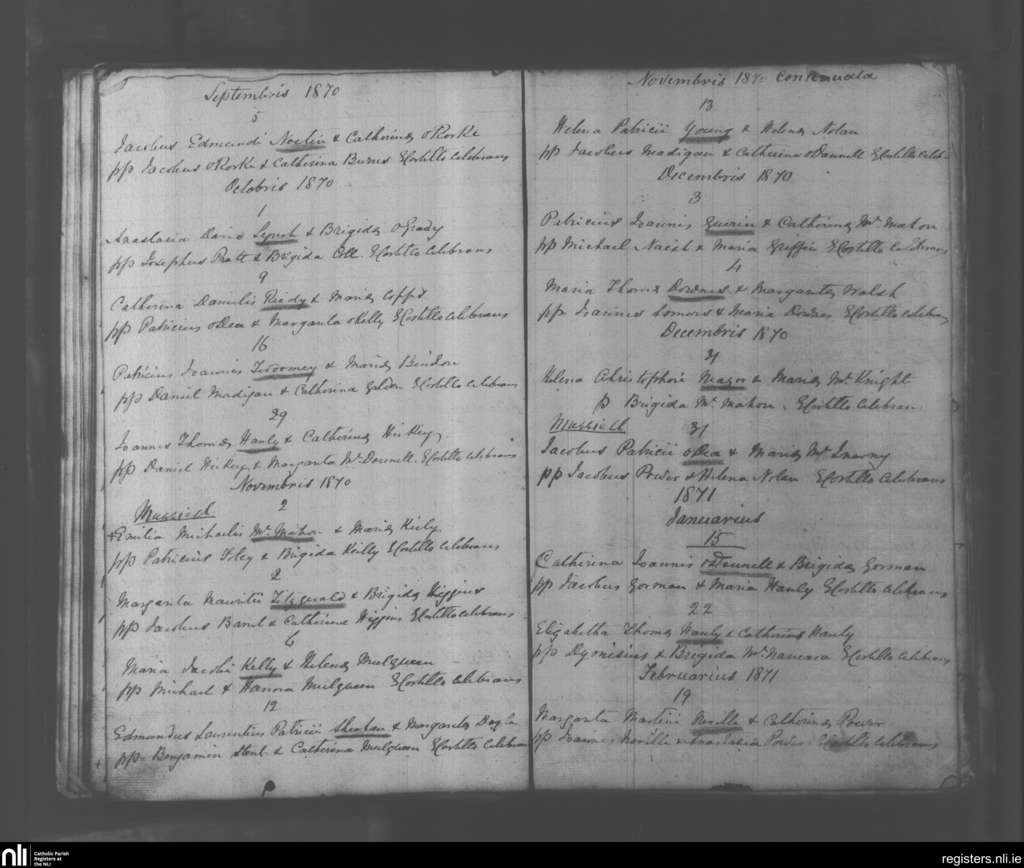 Septembris 1870
5
Jacobus Edmundi Noelin & Catherinæ ORorke
pp Jacobus ORorke & Catherina Burns E Costello Celebrans
Octobris 1870
1
Anastasia David Lynch & Brigidæ OGrady
pp Josephus Pratt & Brigida Coll. E Costello Celebrans
9
Catherina Danielis Reidy & Mariæ
pp Patricius ODea & Margarita OKelly E Costello Celebrans
16
Patricius Joannis Twoomey & Mariæ Bindon
pp Daniel Madigan & Catherina Golden E Costello Celebrans
29
Joannes Thomæ Hanly & Catherinæ Hickey
pp Daniel Hickey & Margarita McDonnell. E Costello Celebrans
Novembris 1870
2
Emilia Michaelis McMahon & Mariæ Kiely
pp Patricius Foley & Brigida Reilly E Costello Celebrans
2
Margarita Mauritii Fitzgerald & Brigidæ Higgins
pp Jacobus & Catherina Higgins E Costello Celebrans
6
Maria Jacobi Kelly & Helenæ Mulqueen
pp Michael & Hanora Mulqueen E Costello Celebrans
12
Edmundus Laurentius Patricii Sheehan & Margaritæ
pp Benjamin & Catherina Mulqueen E Costello Celebran
Novembris 1870 Continuata
13
Helena Patricii Young & Helenæ Nolan
pp Jacobus Madigan & Catherina ODonnell E Costello Celeb
Decembris 1870
3
Patricius Joannis Guerin & Catherinæ McMahon
pp Michael Naish & Maria Griffin E Costello Celebrans
4
Maria Thomæ Downes & Margaritæ Walsh
pp Joannes & Maria Downes E Costello Celebrans
Decembris 1870
Helena Christophori Meagor & Mariæ McKnight
p Brigida McMahon. E Costello Celebran
31
Jacobus Patricii ODea & Mariæ McInerny
pp Jacobus Power & Helena Nolan E Costello Celebrans
1871
Januarius
15
Catherina Joannis ODonnell & Brigidæ Gorman
pp Jacobus Gorman & Maria Hanly E Costello Celebrans
22
Elizabetha Thomæ Hanly & Catherinæ Hanly
pp Dyonisius & Brigida McNamara E Costello Celebrans
Februarius 1871
19
Margarita Martini Neville & Catherinæ Power
pp Joannes Neville & Anastasia Power E Costello Celebrans
nli
Catholic Parish
Registers at
the NLI
registers.nli.ie